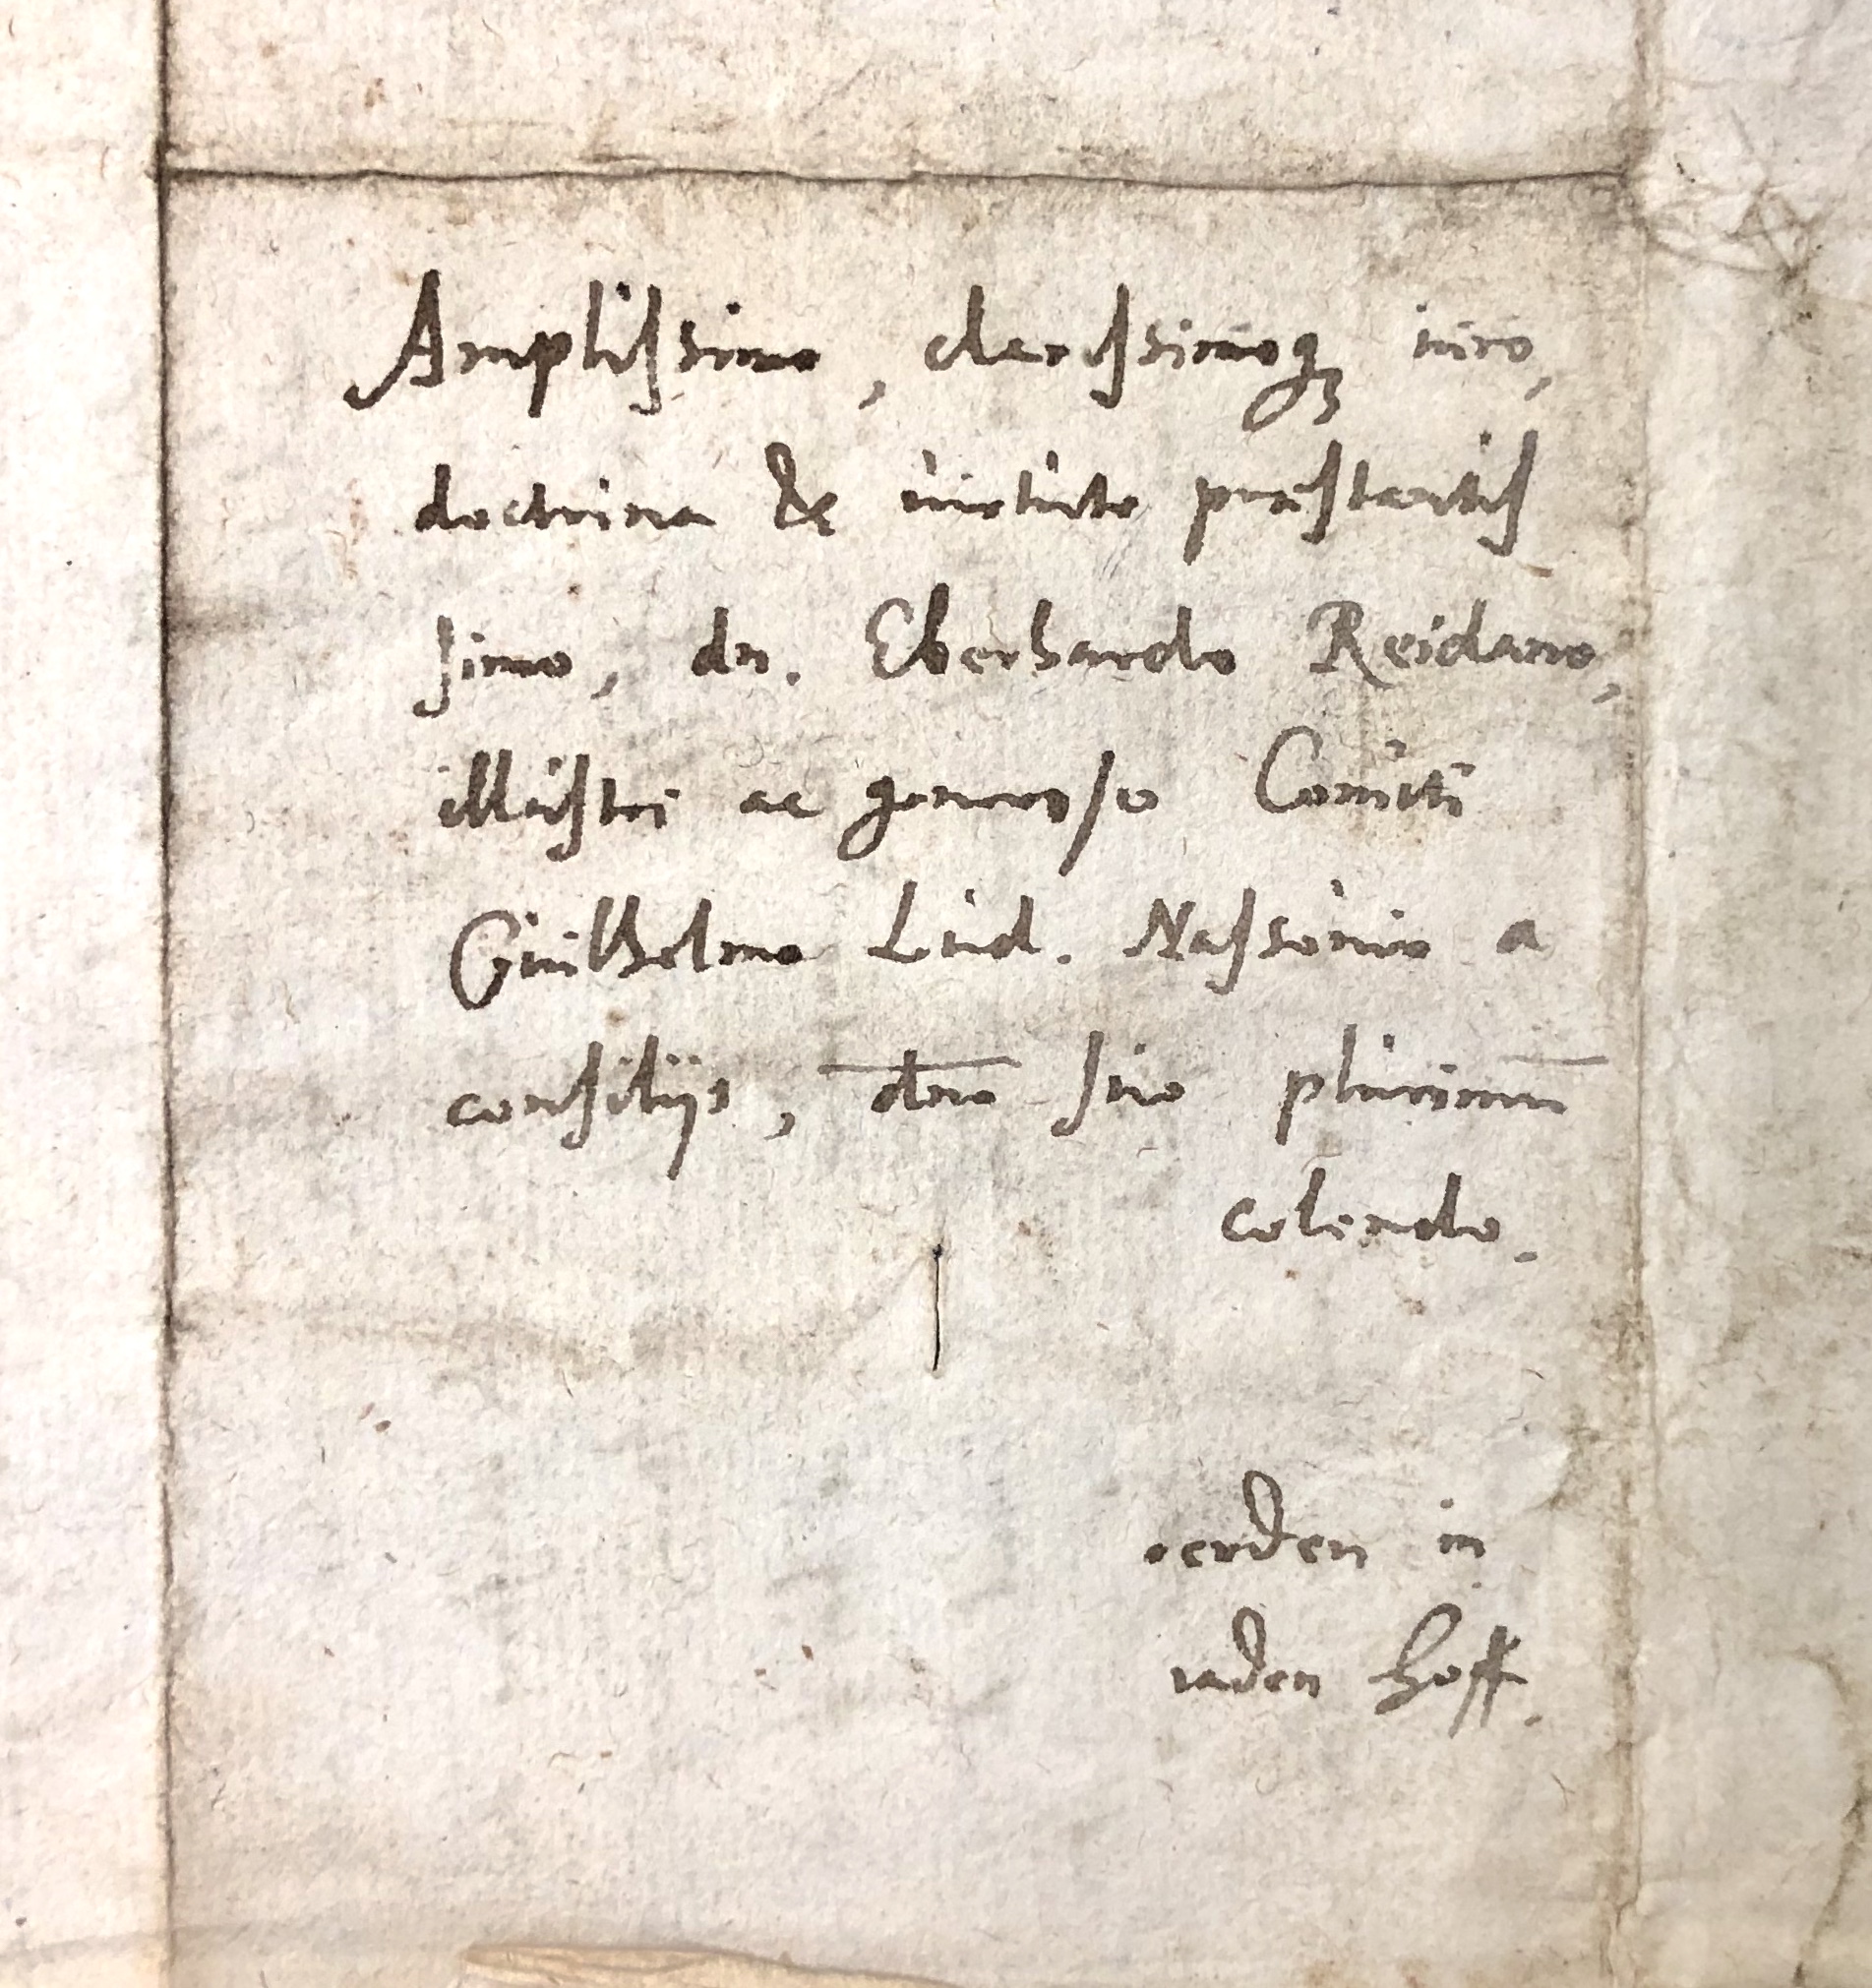 Ampliſsimo, clariſsimoq₃ uiro,
doctrina & uirtute præſtantiſ
ſimo, dn. Eberhardo Reidano,
illuſtri ac generoſo Comiti
Guilhelmo Lud. Naſsouio a
conſilijs, dn̄o ſuo plurimū
colendo.
erden in
raden hoff.